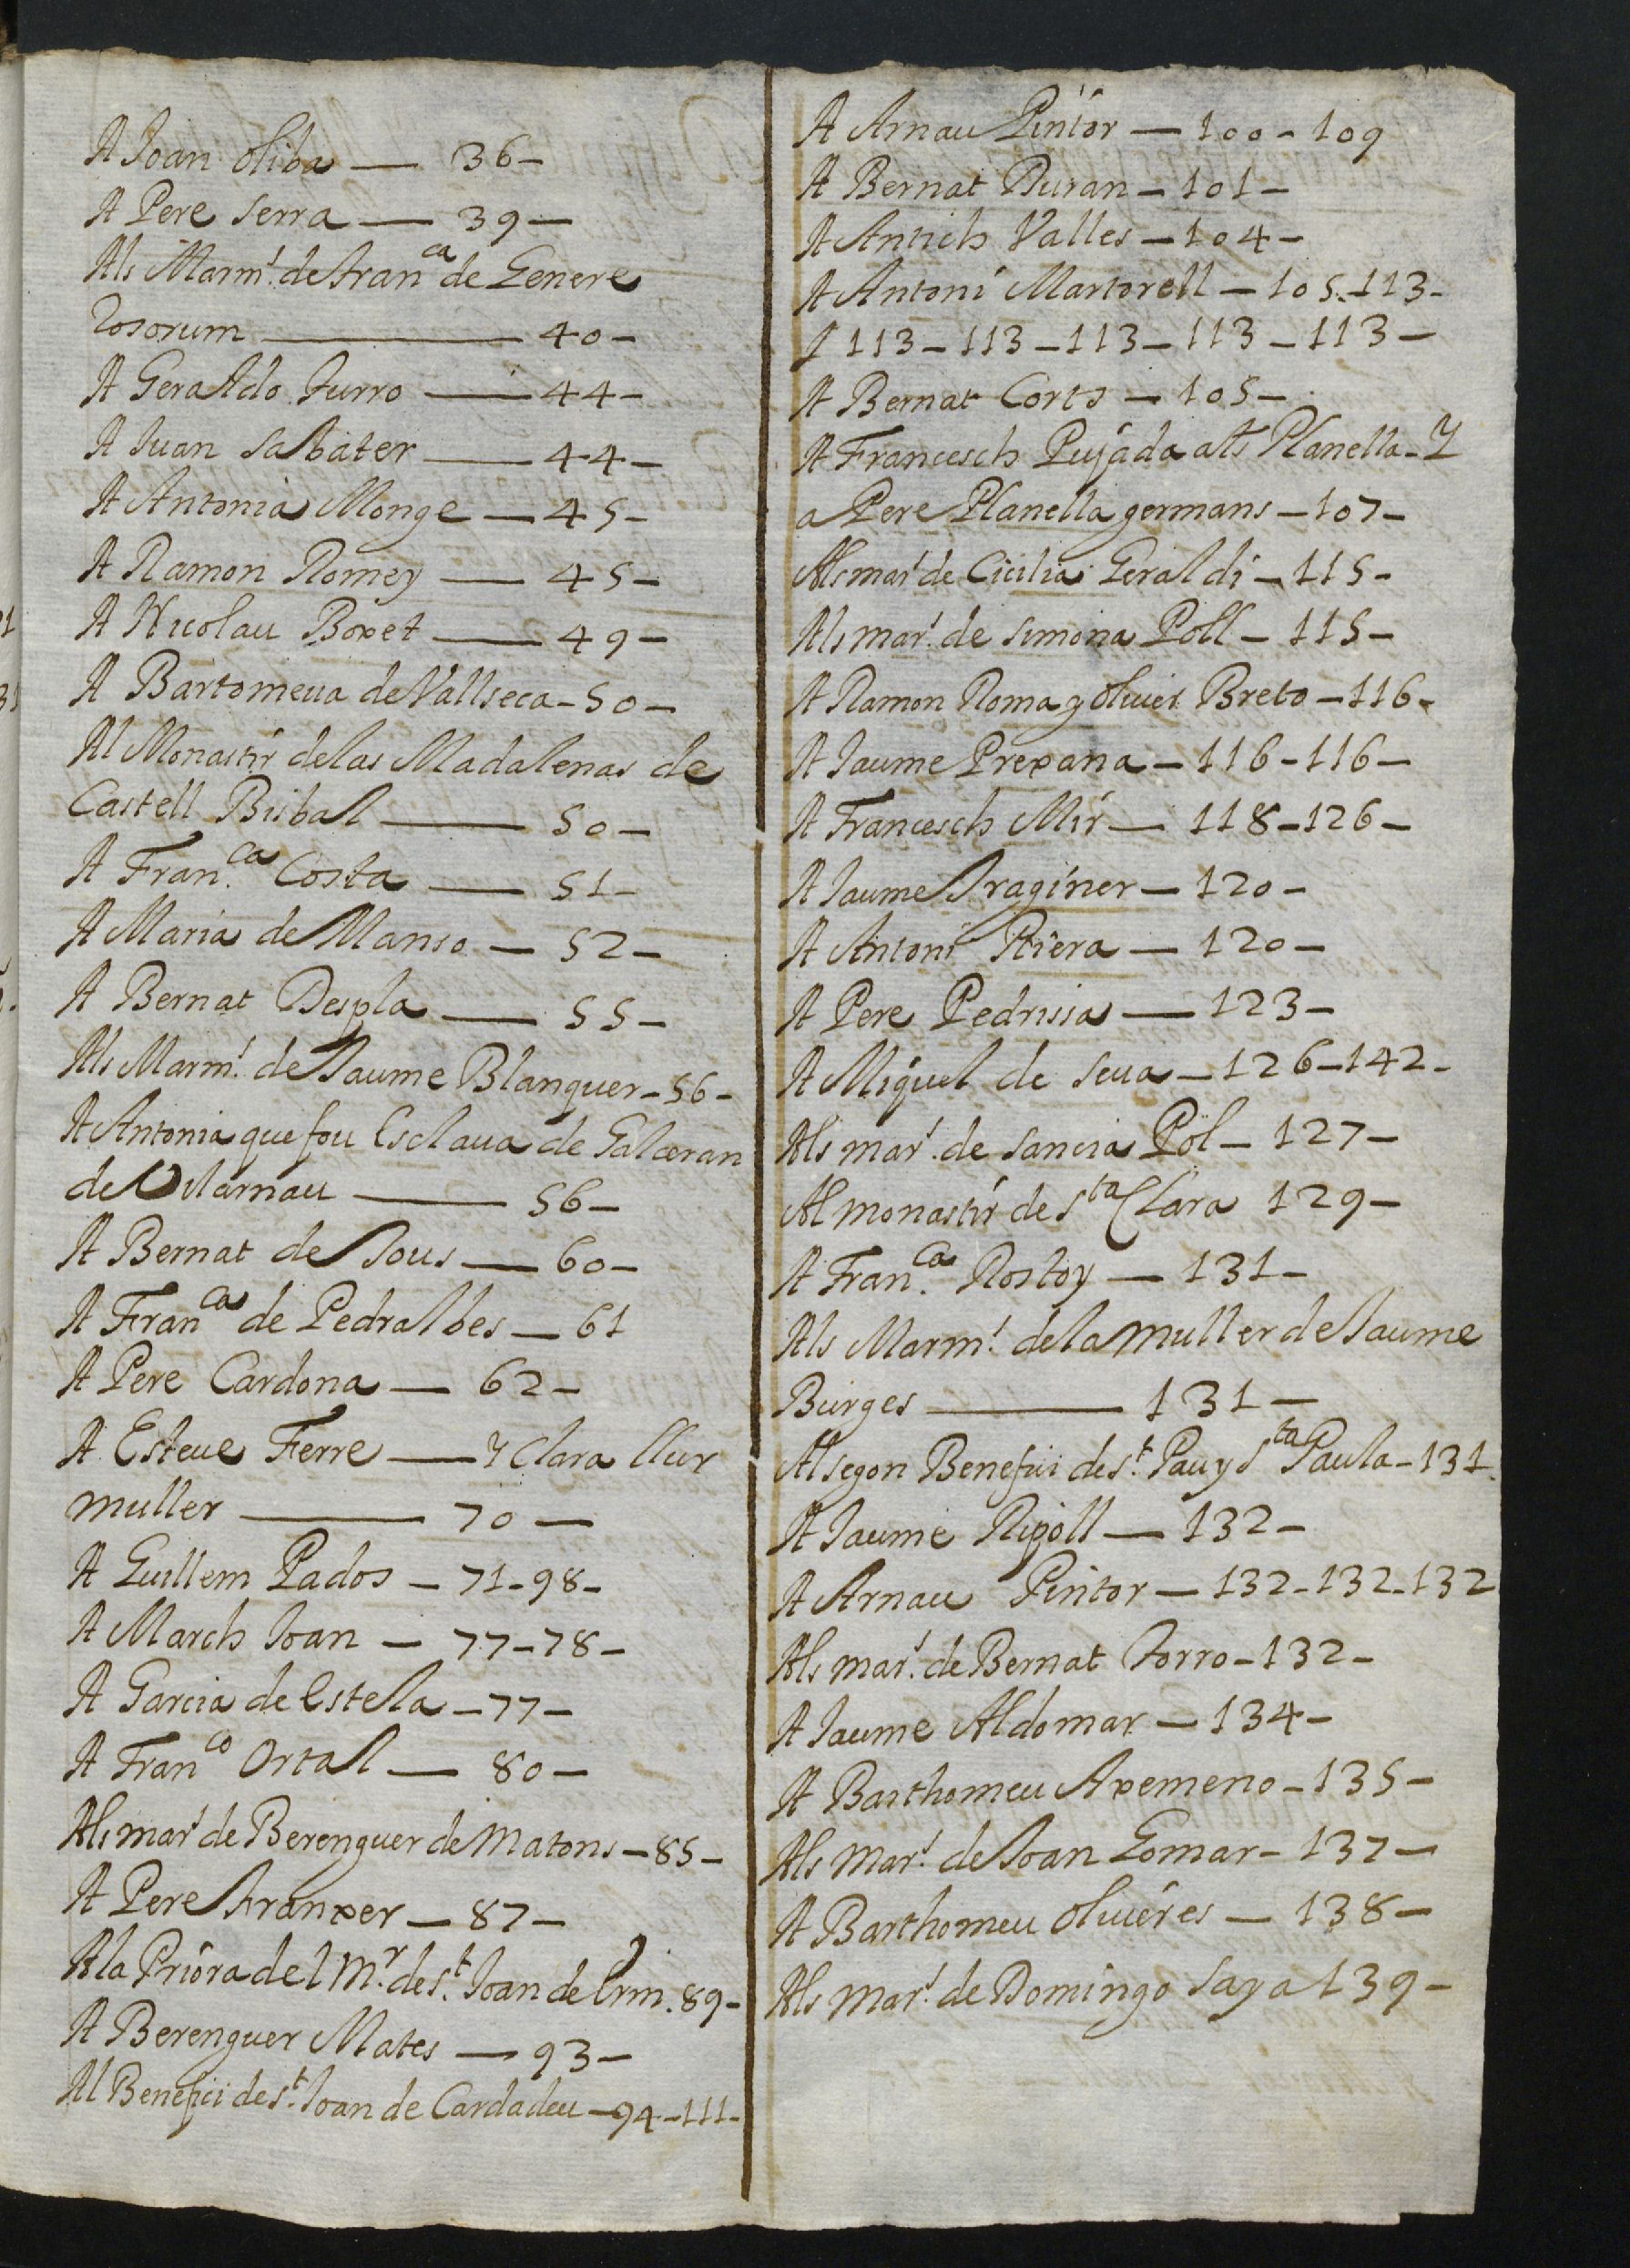 A Joan Oliba — 36 –
A Pere Serra — 39 —
Als Marm.ˢ de Fran.ᶜᵃ de Genere
Rosorum — 40 –
A Geraldo Furro — 44 –
A Juan Sabater — 44 –
A Antonia Monge — 45 –
A Ramon Romey — 45 –
A Nicolau Boxet — 49 –
A Bartomeua de Vallseca – 50 –
Al Monastir de las Madalenas de
Castell Bisbal — 50 –
A Fran.ᶜᵃ Costa — 51 –
A Maria de Manso — 52 –
A Bernat Despla — 55 –
Als Marm.ˢ de Jaume Blanquer – 56 –
A Antonia que fou Esclaua de Galceran
de Vilarnau — 56 –
A Bernat de Sous — 60 –
A Franᶜᵃ de Pedralbes — 61
A Pere Cardona — 62 –
A Esteue Ferre — Y Clara llur
muller — 70 —
A Guillem Pados – 71 – 98 –
A March Joan — 77 – 78 –
A Garcia de Estela – 77 –
A Franᶜᵒ Ortal — 80 —
Als marˢ de Berenguer de Matons – 85 –
A Pere Franxer — 87 –
A la Priora del M.ʳ de S.ᵗ Joan de Erm. 89 –
A Berenguer Mates — 93 –
Al Benefici de S.ᵗ Joan de Cardadeu – 94 – 111 –
A Arnau Pintor — 100 – 109
A Bernat Duran – 101 –
A Antich Valles – 104 –
A Antoni Martorell – 105 – 113 –
Y 113 – 113 – 113 – 113 – 113 –
A Bernat Corts – 105 –
A Francesch Pujada als Planella – Y
a Pere Planella germans – 107 –
Als marˢ de Cicilia Geraldi – 115 –
Als mar.ˢ de Simona Poll – 115 –
A Ramon Roma y Oliuer Breto – 116 –
A Jaume Prexana – 116 – 116 –
A Francesch Mir — 118 – 126 –
A Jaume Traginer – 120 –
A Antoni Riera — 120 –
A Pere Pedrissa — 123 –
A Miquel de Seua – 126 – 142 –
Als mar.ˢ de Sancia Pol – 127 –
Al monastir de Sᵗᵃ Clara 129 –
A Fran.ᶜᵃ Rostoy — 131 –
Als Marm.ˢ de la muller de Jaume
Burges — 131 –
Al segon Benefici de S.ᵗ Pau y Sᵗᵃ Paula – 131.
A Jaume Ripoll — 132 –
A Arnau Pintor — 132 – 132 – 132
Als mar.ˢ de Bernat Torro – 132 –
A Jaume Aldomar — 134 –
A Barthomeu Axemeno – 135 –
Als Mar.ˢ de Joan Gomar – 137 –
A Barthomeu Oliuéres — 138 –
Als Mar.ˢ de Domingo Saya 139 –